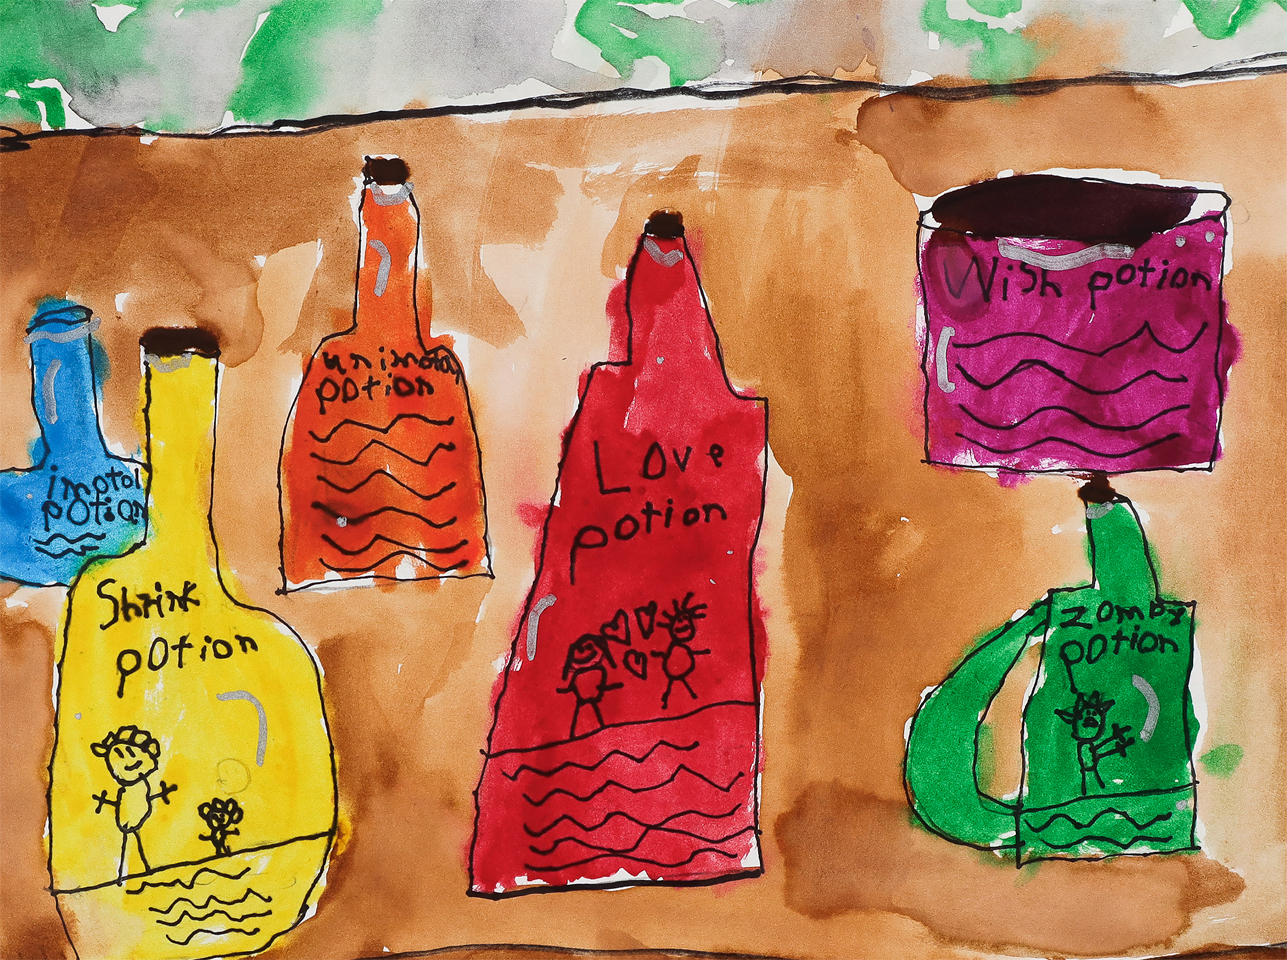 imotal
potion
Shrink
potion
unimotal
potion
Love
potion
Wish potion
zomby
potion